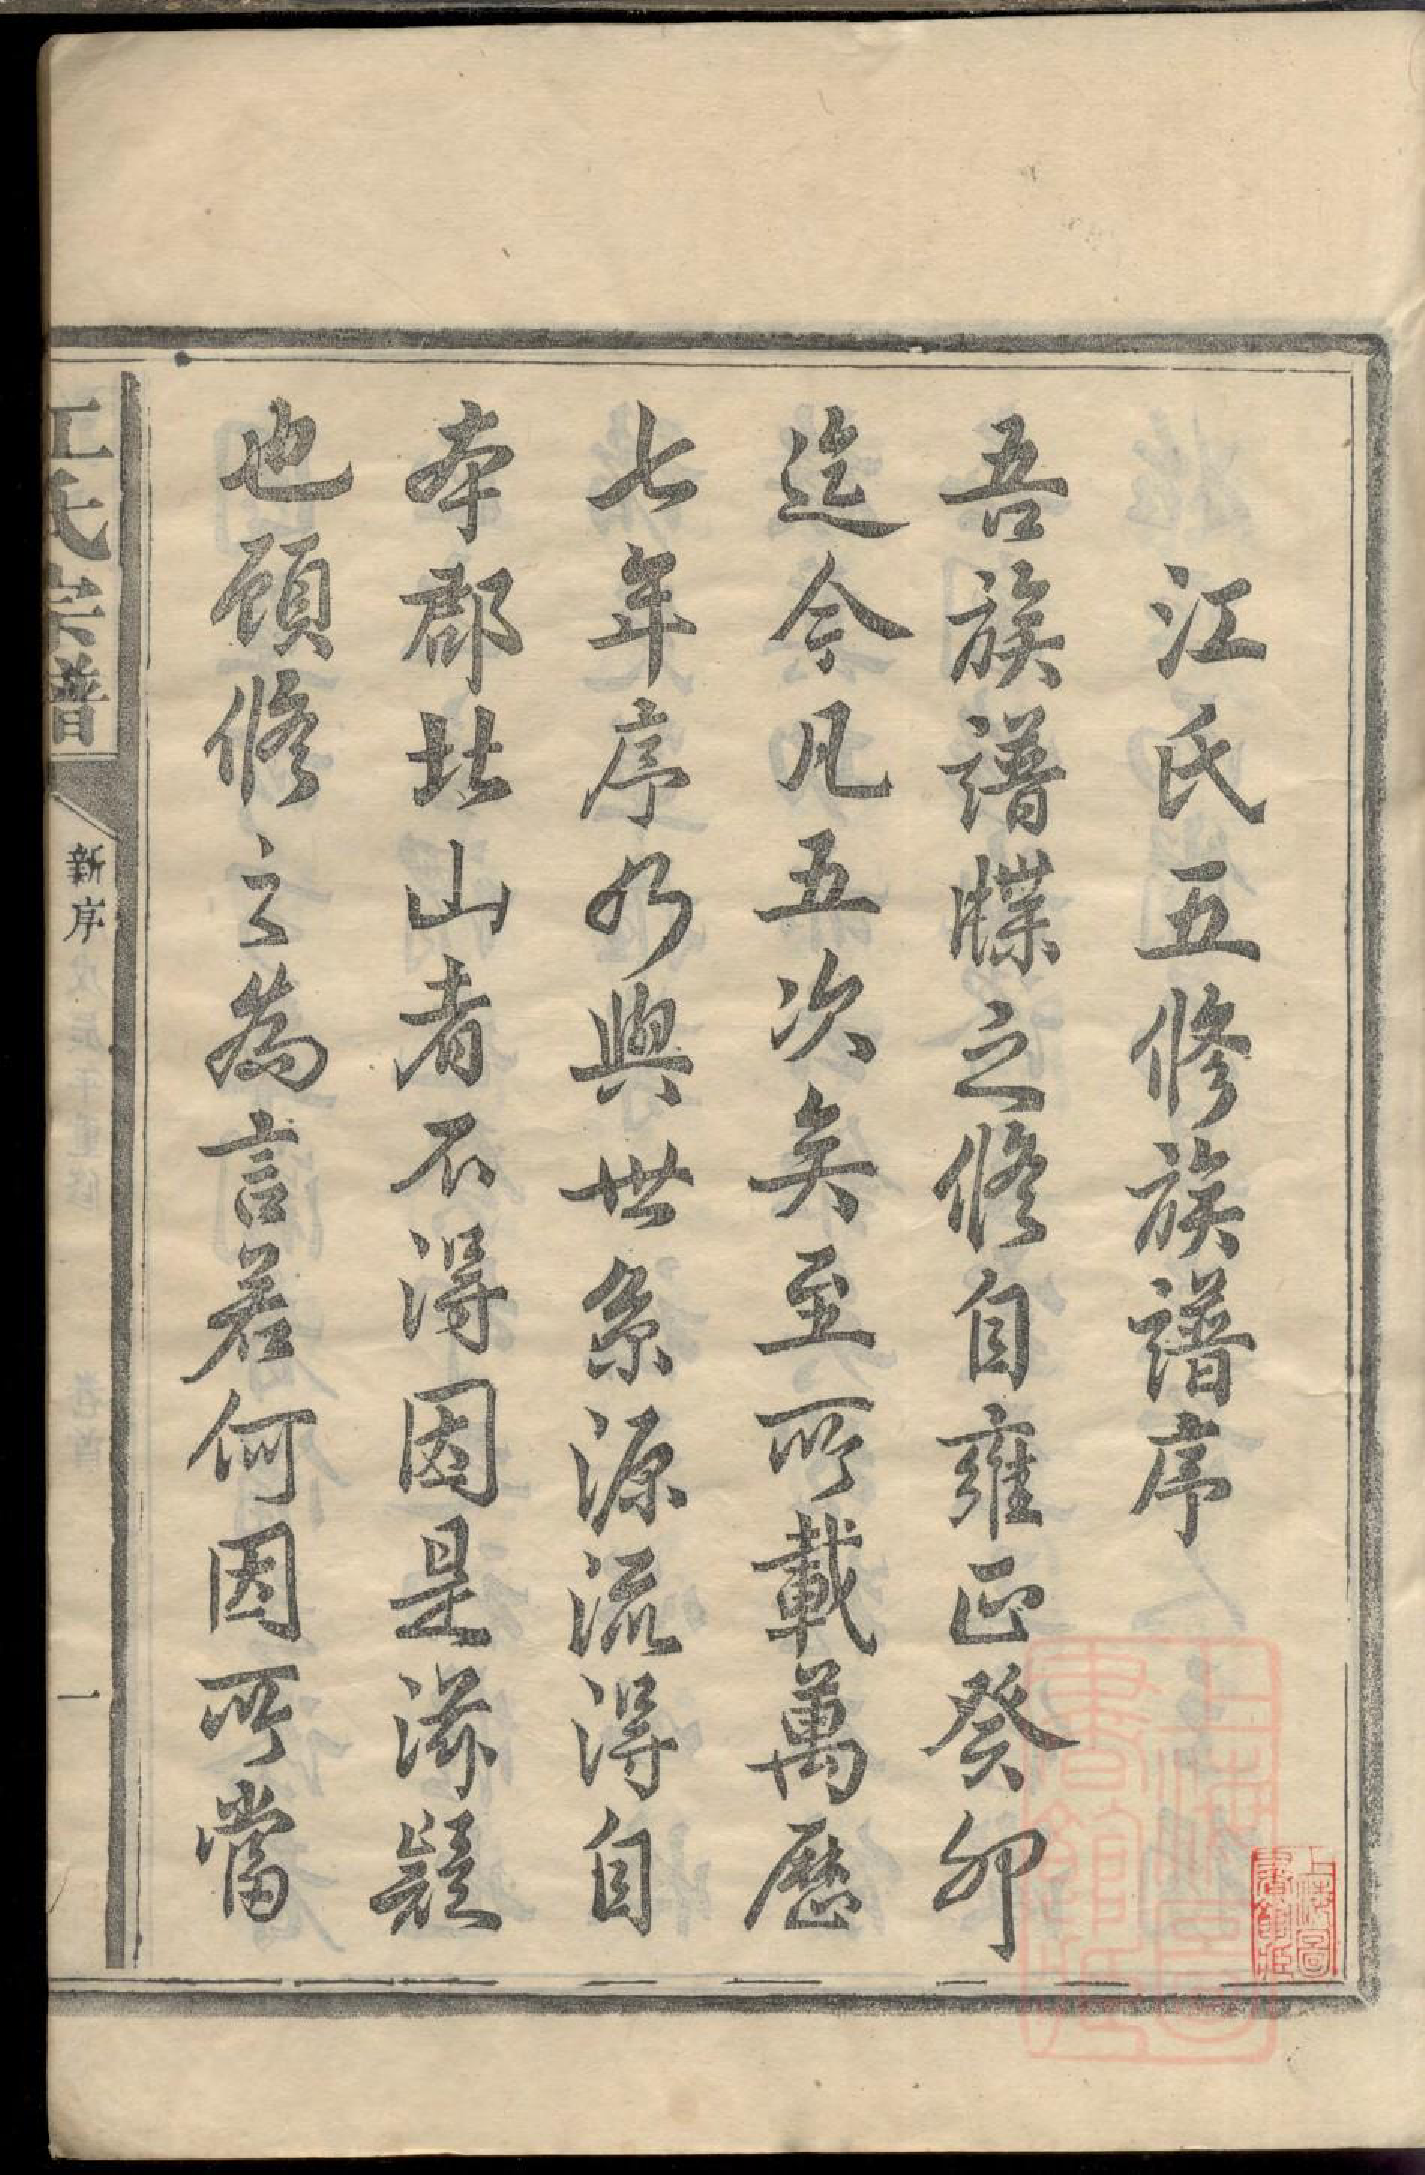 江氏五修族譜序
吾族譜牒之修自雍正癸卯
迄今凡五次矣至所載萬歷
七年序乃與世系源流得自
本郡北山者不得因是滋疑
也顧修之為言若何因所當
江氏宗譜
新序
一
上海圖書館藏